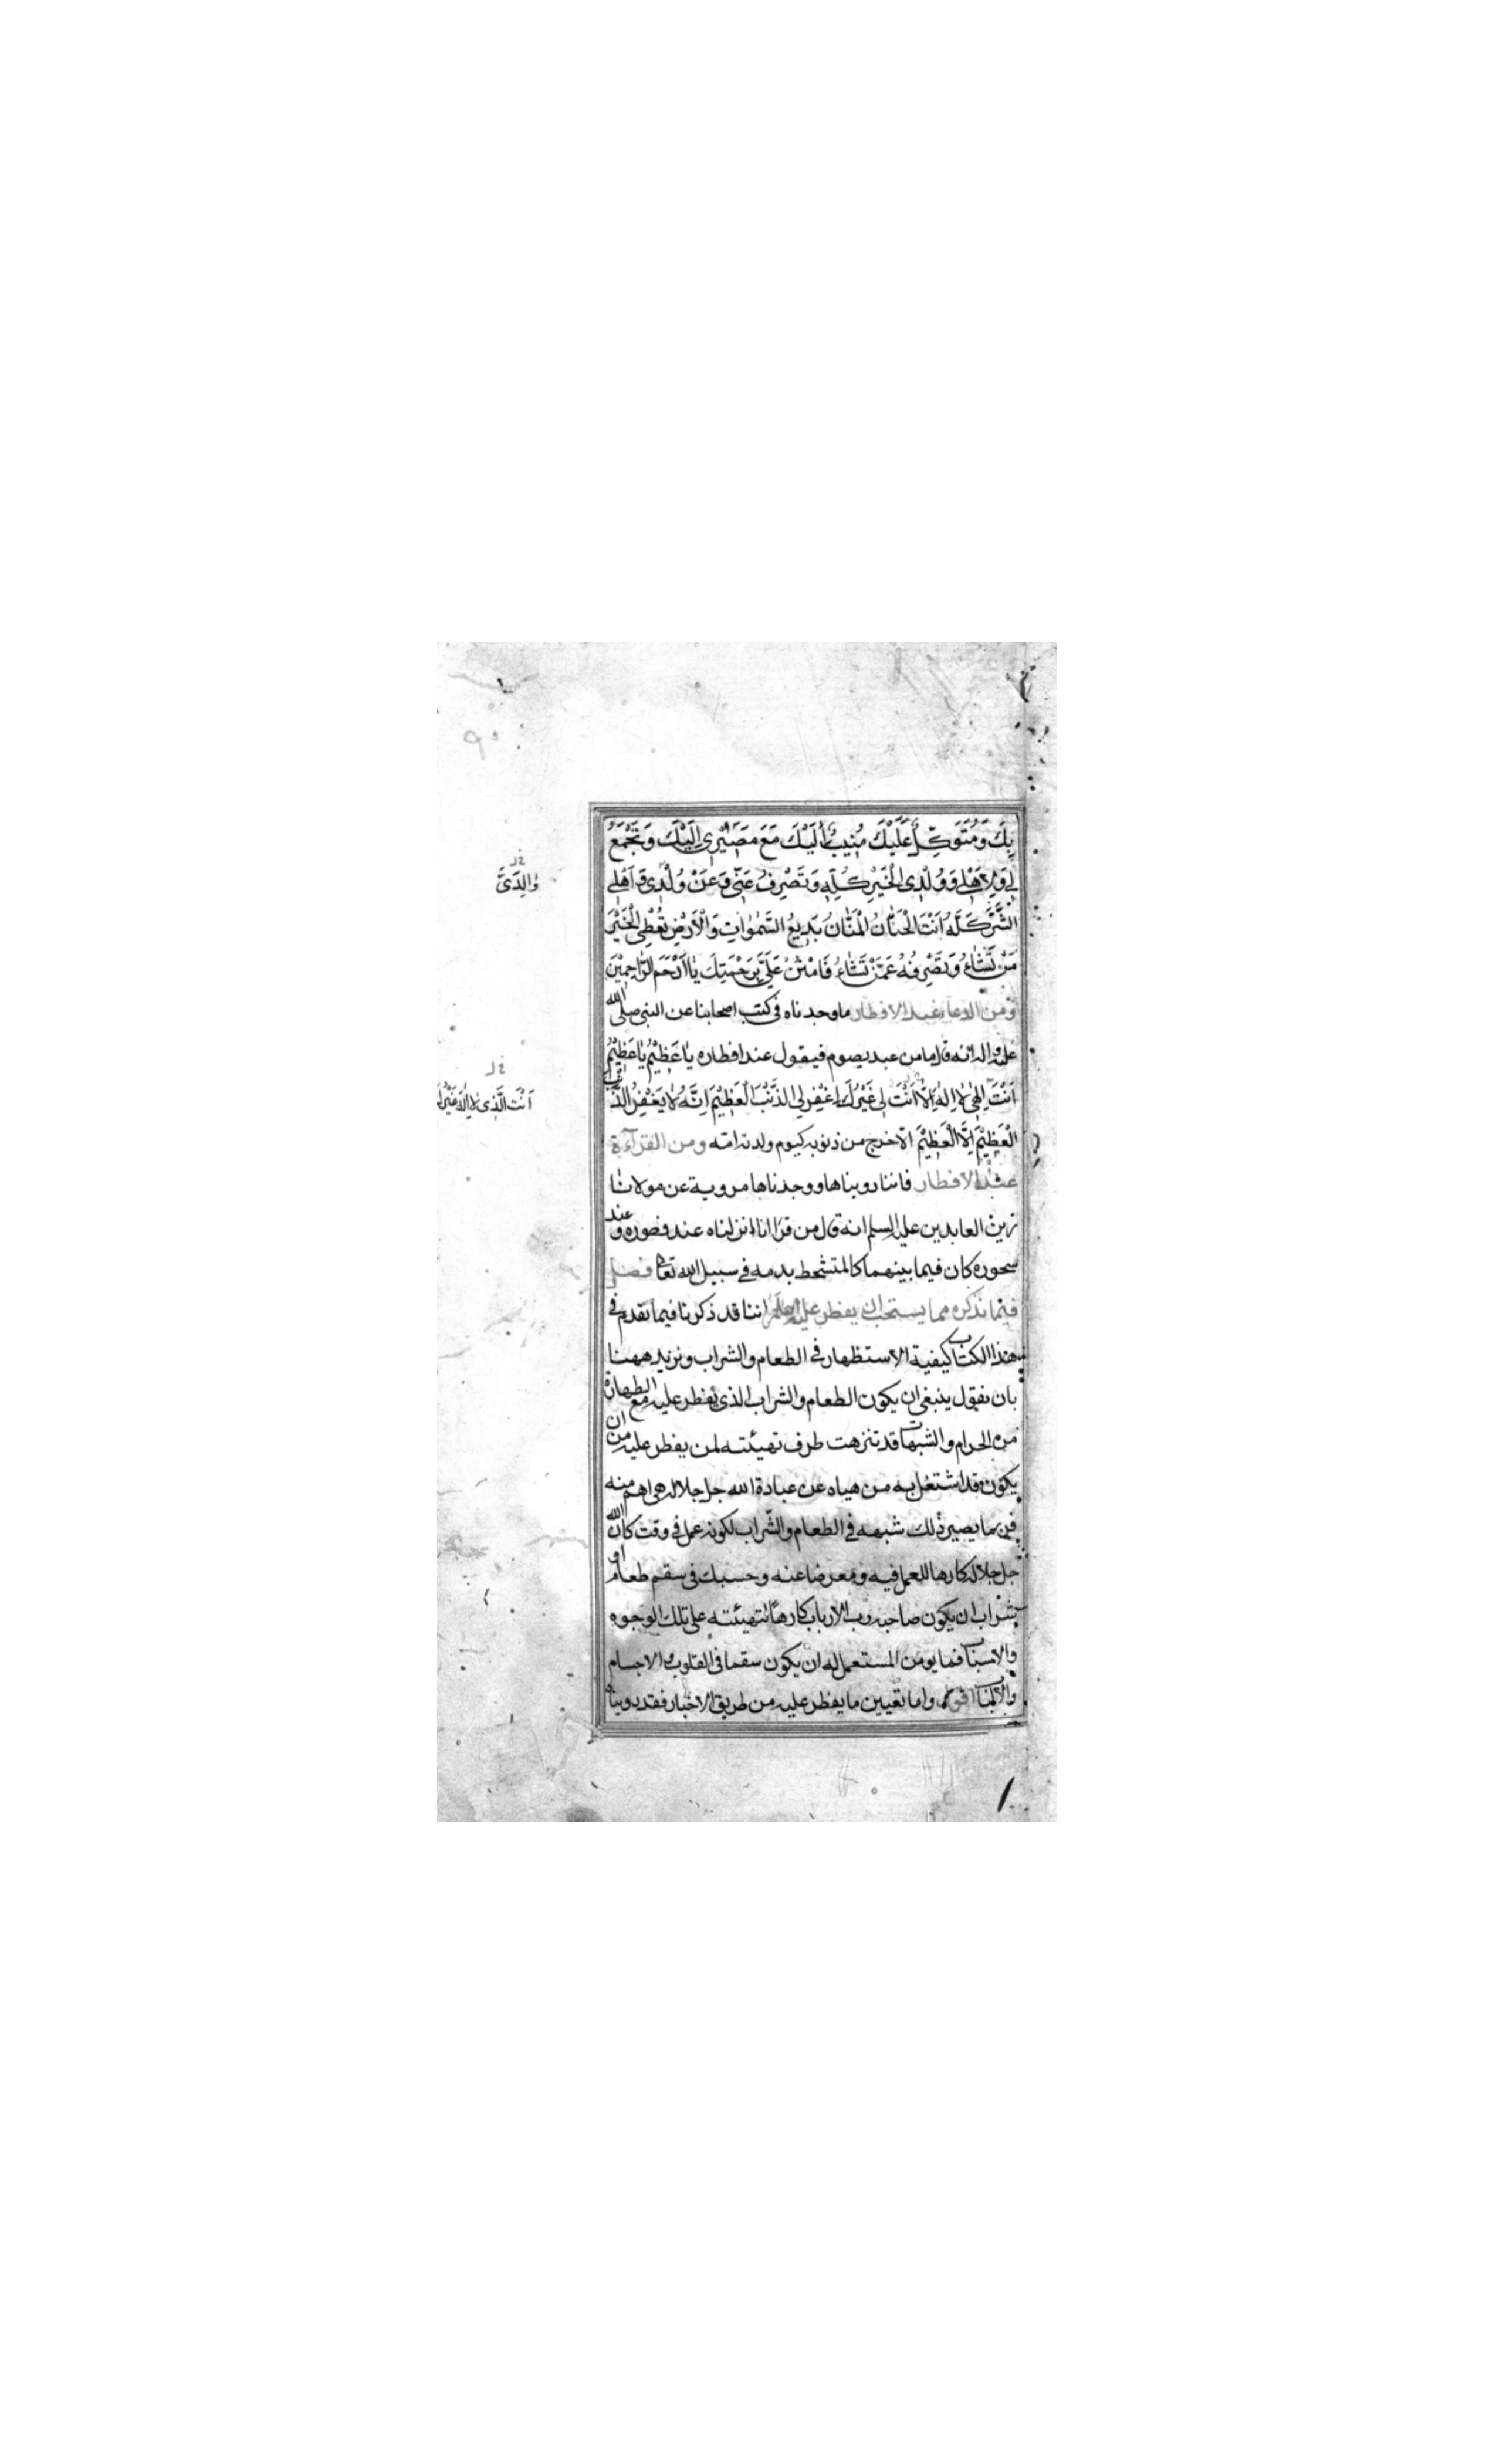 بِكَ وَمُتَوَكِّلٌ عَلَيْكَ مُنِيبٌ اِلَيْكَ مَعَ مَصٖيرٖى اِلَيْكَ وَتَجْمَعُ
لٖى وَلِاَهْلٖى وَوُلْدِى الْخَيْرَ كُلَّهُ وَتَصْرِفُ عَنّٖى وَعَنْ وُلْدٖى وَاَهْلٖى
الشَّرَّ كُلَّهُ اَنْتَ الْحَنّٰانُ الْمَنّٰانُ بَدٖيعُ السَّمٰوٰاتِ وَالْاَرْضِ تُعْطِى الْخَيْرَ
مَنْ تَشٰاءُ وَتَصْرِفُهُ عَمَّنْ تَشٰاءُ فَامْنُنْ عَلَىَّ بِرَحْمَتِكَ يٰا اَرْحَمَ الرّٰاحِمٖينَ
ومن الدعاء عند الافطار ما وجدناه فى كتب اصحابنا عن النبى صلى الله
عليه واله انه قال ما من عبد يصوم فيقول عند افطاره يٰا عَظٖيمُ يٰا عَظٖيمُ
اَنْتَ اِلٰهٖى لٰا اِلٰهَ اِلّٰا اَنْتَ لٖى غَيْرُكَ اِغْفِرْ لِىَ الذَّنْبَ الْعَظٖيمَ اِنَّهُ لٰا يَغْفِرُ الذَّنْبَ
الْعَظٖيمَ اِلَّا الْعَظٖيمُ الا خرج من ذنوبه كيوم ولدته امه ومن القرآءة
عند الافطار فاننا رويناها ووجدناها مروية عن مولانا
زين العابدين عليه السلم انه قال من قرا انا انزلناه عند فطوره وعند
سحوره كان فيما بينهما كالمتشحط بدمه فى سبيل الله تعالى فصل
فيما نذكره مما يستحب ان يفطر عليه اعلم اننا قد ذكرنا فيما تقدم فى
هذا الكتاب كيفية الاستظهار فى الطعام والشراب ونزيد ههنا
بان نقول ينبغى ان يكون الطعام والشراب الذى يفطر عليه مع الطهارة
من الحرام والشبهات قد تنزهت طرف تهيئته لمن يفطر عليه من ان
يكون قد اشتغل به من هياه عن عبادة الله جل جلاله هى اهم منه
فربما يصير ذلك شبهه فى الطعام والشّراب لكونه عمل فى وقت كان الله
جل جلاله كارها للعمل فيه ومعرضا عنه وحسبك فى سقم طعام او
شراب ان يكون صاحبه رب الارباب كارهًا لتهيئته على تلك الوجوه
والاسباب فما يومن المستعمل له ان يكون سقما فى القلوب والاجسام
والالباب اقول واما تعيين ما يفطر عليه من طريق الاخبار فقد روينا
وٰالِدَىَّ
اَنْتَ الَّذٖى لٰا اِلٰهَ غَيْرُكَ